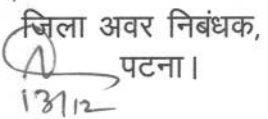 जिला अवर निबंधक,
पटना।
13/12